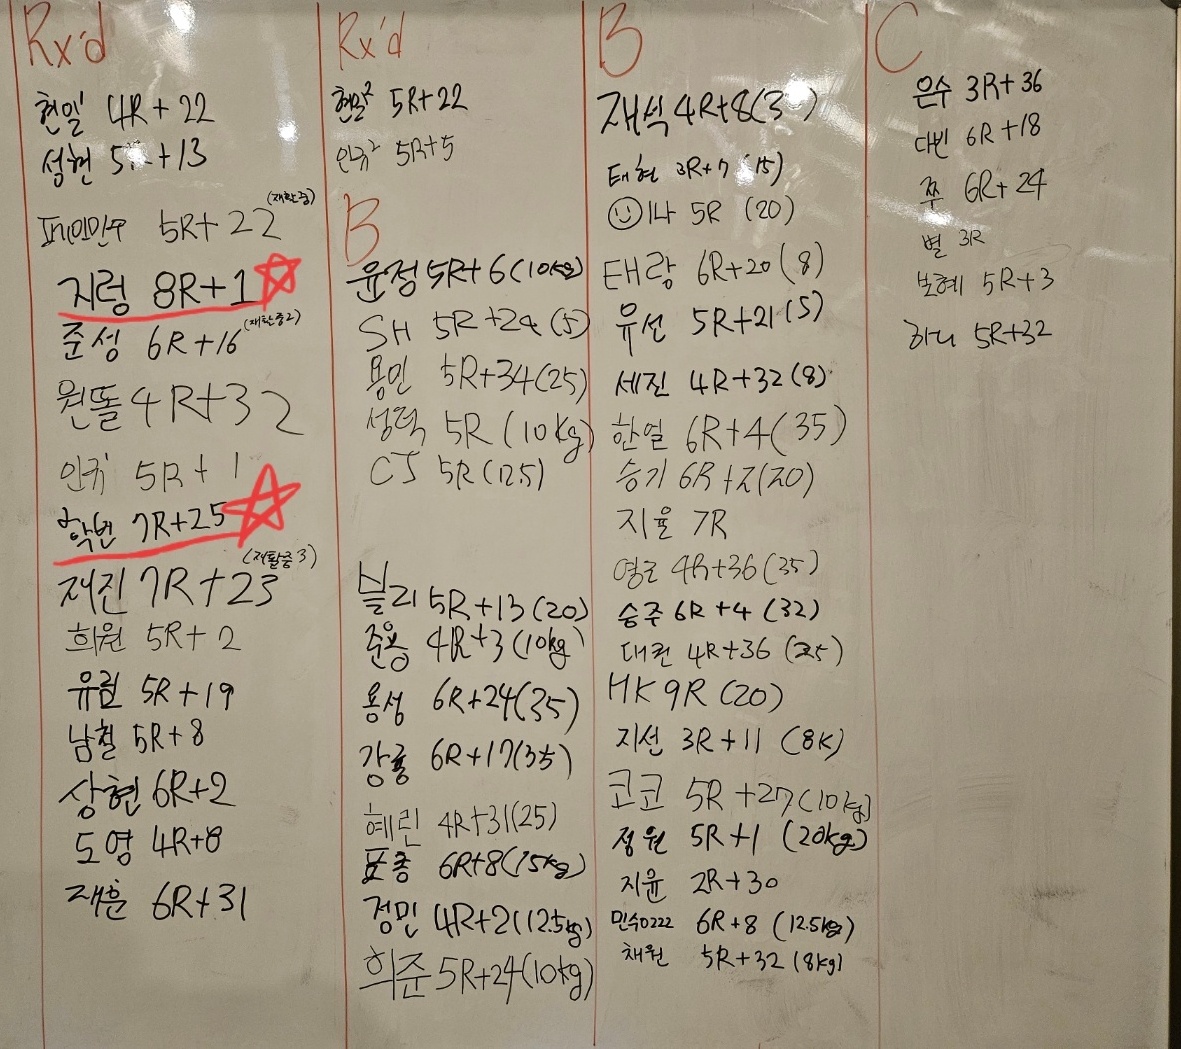 Rx'd
현일 4R+22
성현 5R+13
5R+22 (재활중)
지렁 8R+1
준성 6R+16 (재활중2)
원똘 4R+32
인규 5R+1
학번 7R+25
재진 7R+23 (재활중3)
희원 5R+2
유림 5R+19
남철 5R+8
상현 6R+2
도영 4R+8
재훈 6R+31
Rx'd
현일² 5R+22
인규² 5R+5
B
윤정 5R+6(10kg)
SH 5R+24(5)
용민 5R+34(25)
성덕 5R(10kg)
CJ 5R(12.5)
블리 5R+13(20)
준용 4R+3(10kg)
용성 6R+24(35)
강룡 6R+17(35)
혜린 4R+31(25)
표종 6R+8(15kg)
정민 4R+2(12.5kg)
희준 5R+24(10kg)
B
재석 4R+8
태현 3R+7 (15)
이나 5R (20)
태랑 6R+20(8)
유선 5R+21(5)
세진 4R+32(8)
한열 6R+4(35)
승기 6R+2(20)
지율 7R
4R+36(35)
승주 6R+4(32)
대권 4R+36
HK 9R(20)
지선 3R+11 (8K)
코코 5R+27(10kg)
정원 5R+1 (20kg)
지윤 2R+30
민수0222 6R+8 (12.5kg)
채원 5R+32(8kg)
C
은수 3R+36
다빈 6R+18
쭈 6R+24
별 3R
보혜 5R+3
하니 5R+32